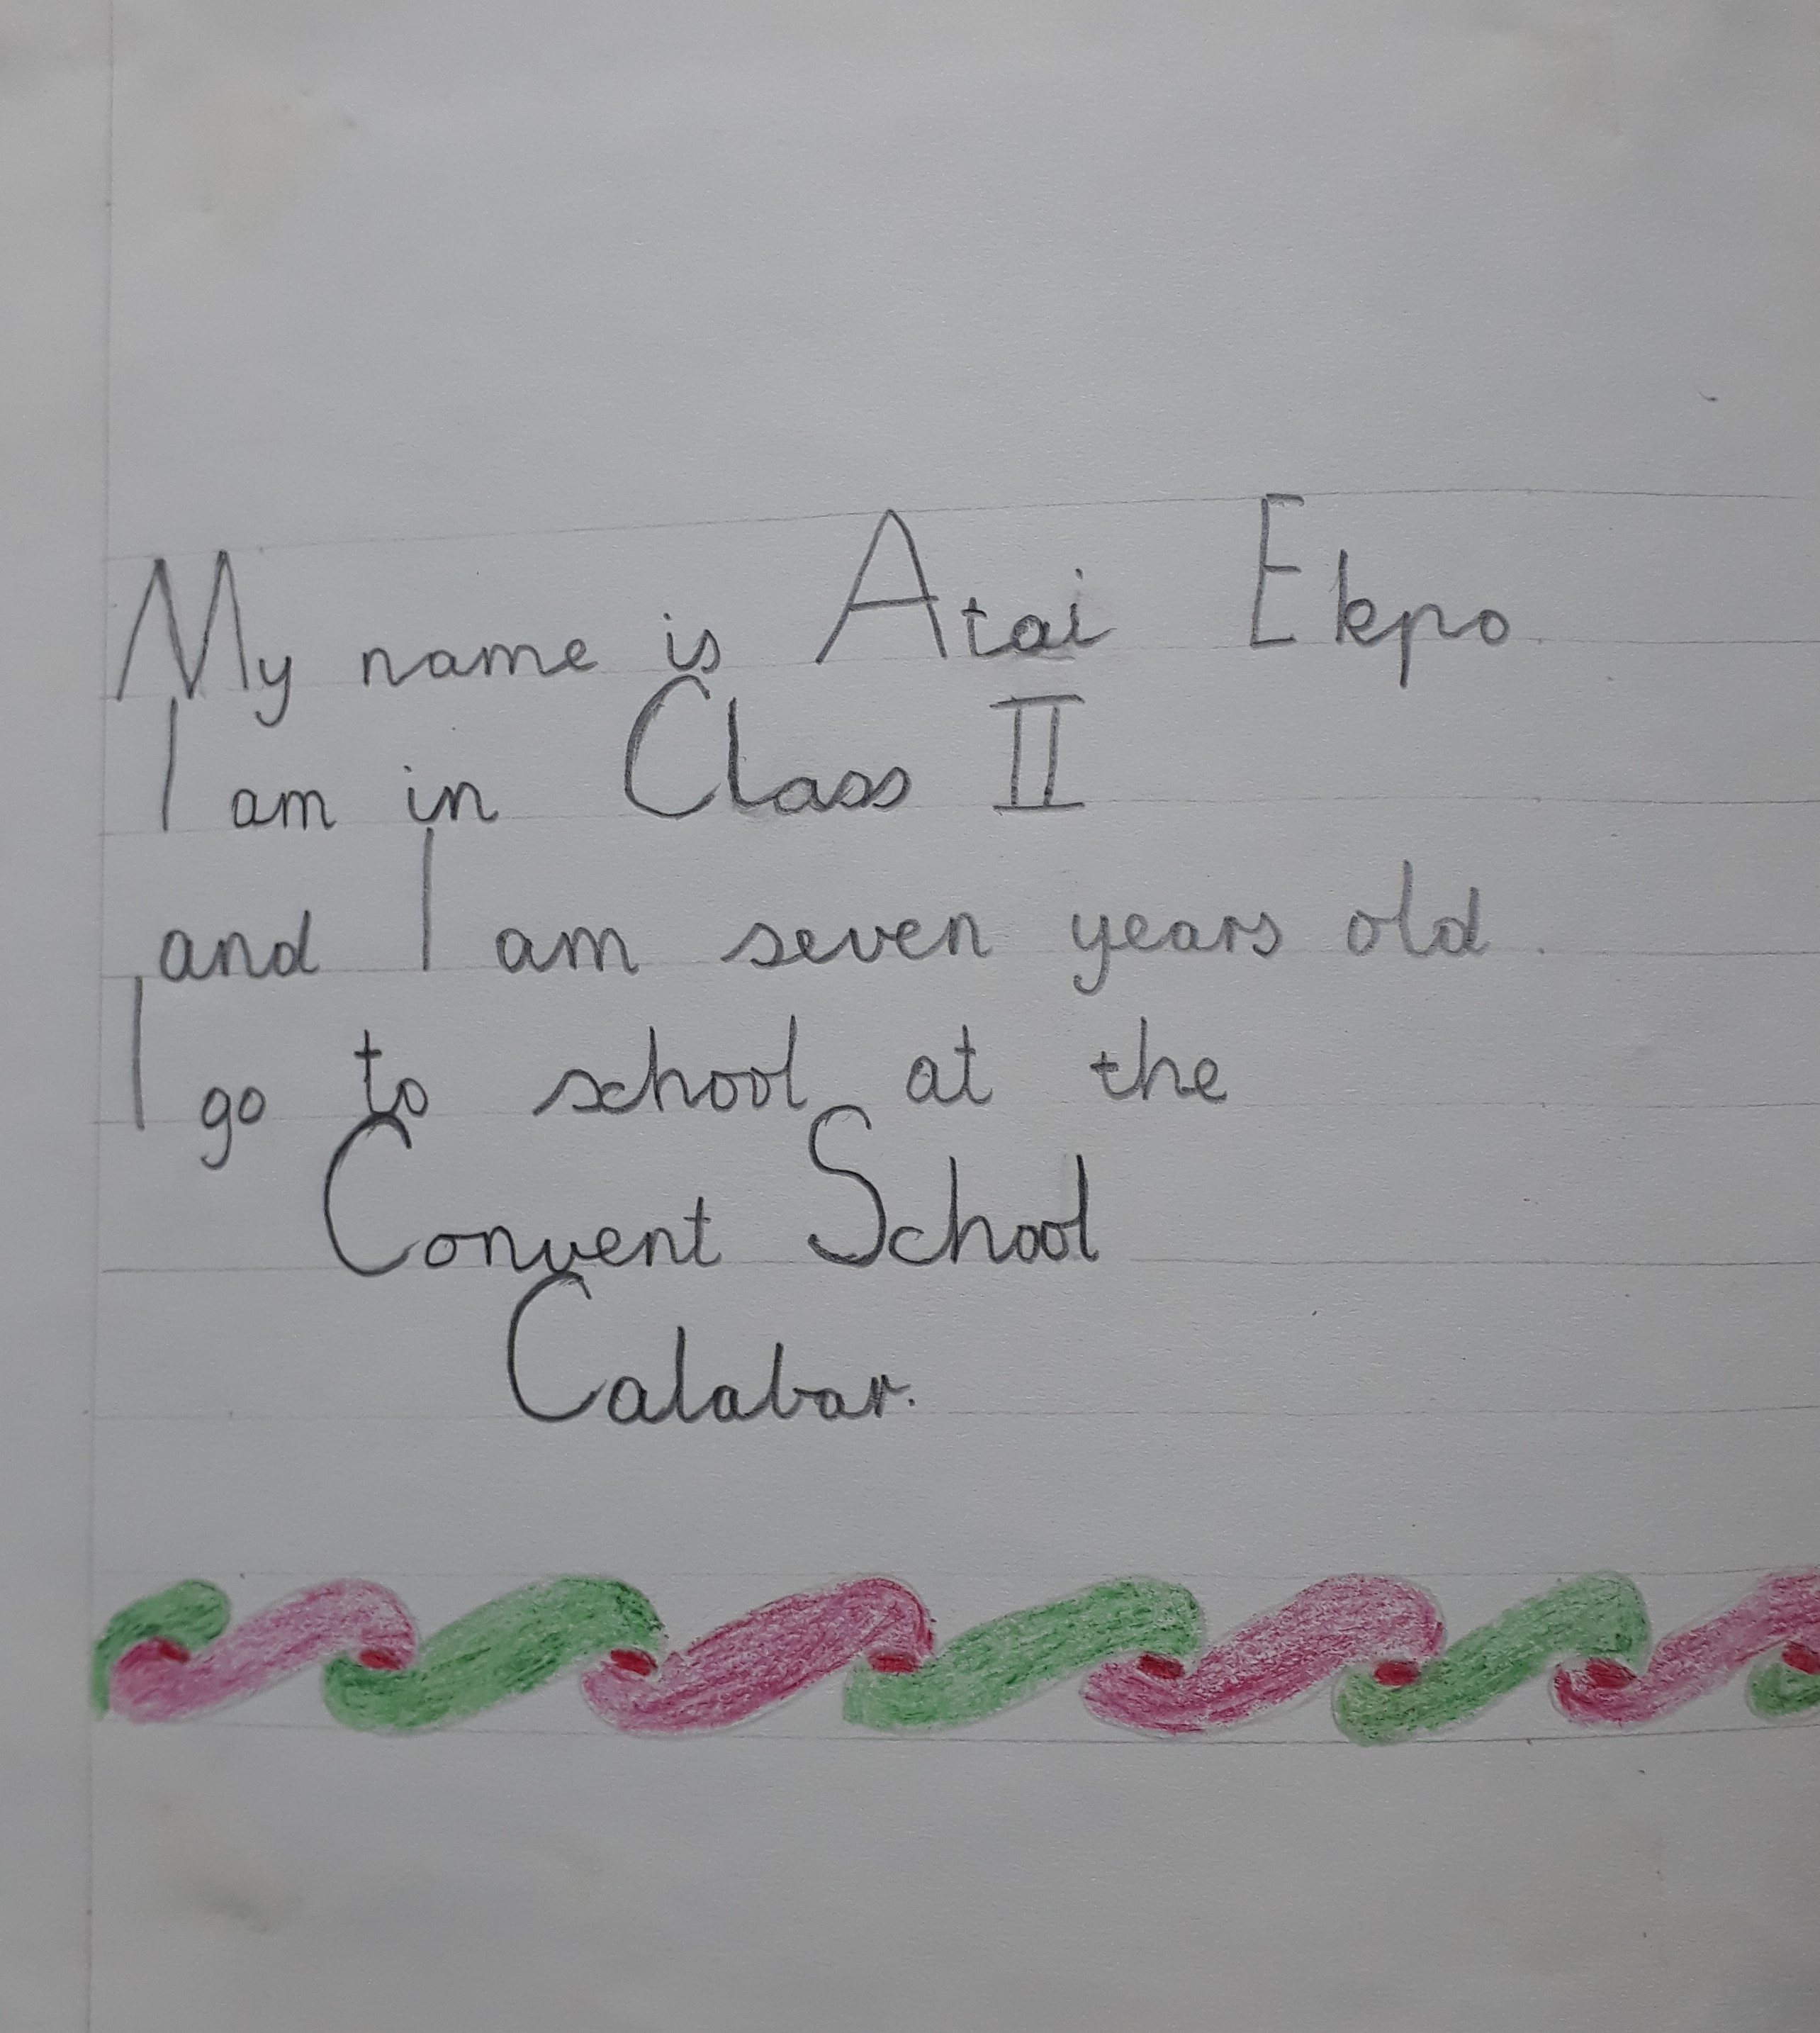 My name is Atai Ekpo.
I am in Class II
and I am seven years old.
I go to school at the
Convent School
Calabar.